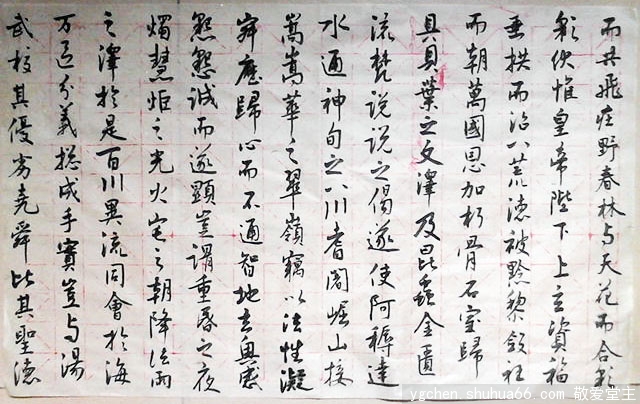 而共飛庄野春林与天花而合彩
彩伏惟皇帝陛下上玄資福
垂拱而治八荒德被黔黎斂衽
而朝萬國恩加朽骨石室歸
具貝葉之文澤及昆蟲金匱
流梵說說之偈遂使阿耨達
水通神甸之八川耆闍崛山接
嵩嵩華之翠嶺竊以法性凝
寂應歸心而不通智地玄奧感
懇懇誠而遂顯豈謂重昏之夜
燭慧炬之光火宅之朝降法雨
之澤於是百川異流同會於海
万區分義總成乎實豈与湯
武校其優劣堯舜比其聖德
ygchen.shuhua66.com 敬爱堂主